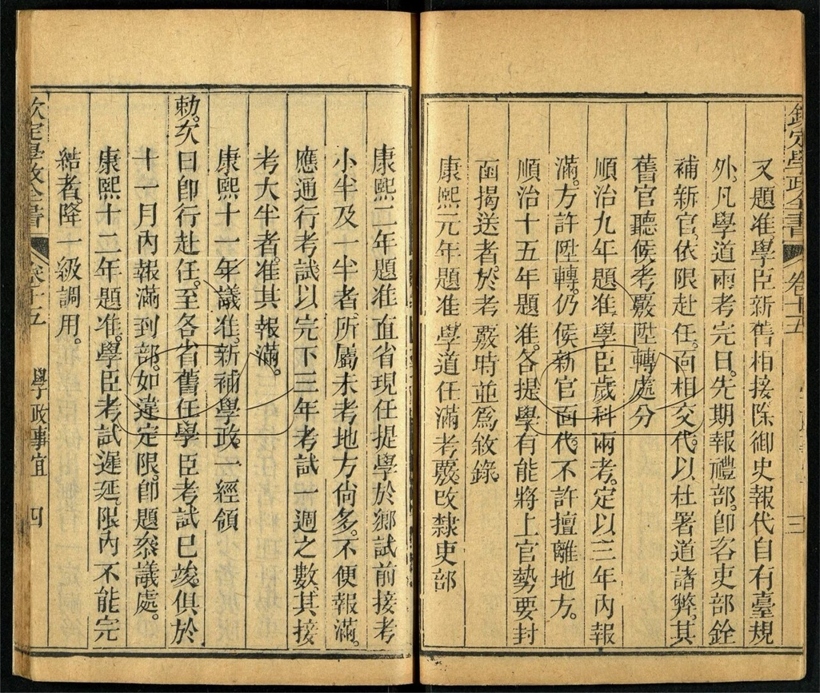 欽定學政全書 卷十五 三
又題准學臣新舊相接除御史報代自有臺規
外凡學道兩考完日先期報禮部卽咨吏部銓
補新官依限赴任面相交代以杜署道諸弊其
舊官聽候考覈陞轉處分
順治九年題准學臣歲科兩考定以三年內報
滿方許陞轉仍候新官面代不許擅離地方
順治十五年題准各提學有能將上官勢要封
函揭送者於考覈時並爲敘錄
康熙元年題准學道任滿考覈改隸吏部
康熙二年題准直省現任提學於鄉試前接考
小半及一半者所屬未考地方尙多不便報滿。
應通行考試以完下三年考試一週之數其接
考大半者准其報滿。
康熙十一年議准新補學政一經領
勅欠日卽行赴任至各省舊任學臣考試已竣俱於
十一月內報滿到部如違定限卽題叅議處。
康熙十二年題准學臣考試遲延限內不能完
結者降一級調用。
欽定學政全書 卷十五 學政事宜 四